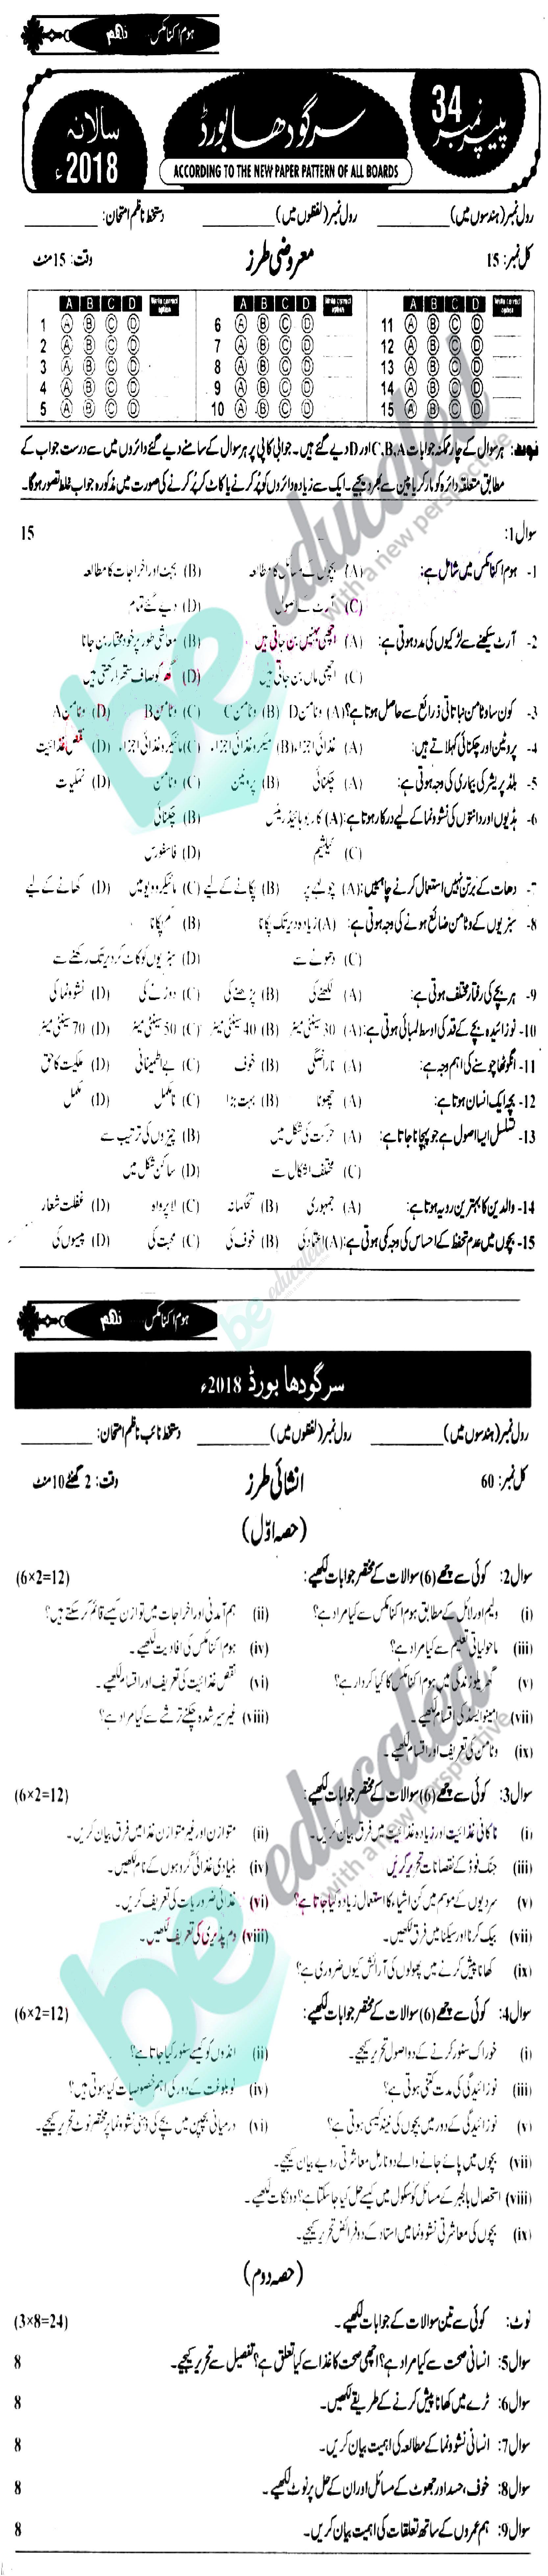 ہوم اکنامکس نہم
پیپر نمبر 34
سرگودھا بورڈ
سالانہ 2018ء
ACCORDING TO THE NEW PAPER PATTERN OF ALL BOARDS
رول نمبر (ہندسوں میں) ________ رول نمبر (لفظوں میں) ________ دستخط ناظم امتحان: ________
کل نمبر: 15 معروضی طرز وقت: 15 منٹ
A B C D Write correct option A B C D Write correct option A B C D Write correct option
1 A B C D 6 A B C D 11 A B C D
2 A B C D 7 A B C D 12 A B C D
3 A B C D 8 A B C D 13 A B C D
4 A B C D 9 A B C D 14 A B C D
5 A B C D 10 A B C D 15 A B C D
نوٹ: ہر سوال کے چار ممکنہ جوابات C,B,A اور D دیے گئے ہیں۔ جوابی کاپی پر ہر سوال کے سامنے دیے گئے دائروں میں سے درست جواب کے
مطابق متعلقہ دائرہ کو مارکر یا پین سے بھر دیجیے۔ ایک سے زیادہ دائروں کو پُر کرنے یا کاٹ کر پُر کرنے کی صورت میں مذکورہ جواب غلط تصور ہوگا۔
سوال 1: 15
1- ہوم اکنامکس میں شامل ہے: (A) بچوں کے مسائل کا مطالعہ (B) بجٹ اور اخراجات کا مطالعہ
(C) آرٹ کے اصول (D) دیے گئے تمام
2- آرٹ سیکھنے سے لڑکیوں کی مدد ہوتی ہے: (A) اچھی بہنیں بن جاتی ہیں (B) معاشی طور پر خود مختار بن جانا
(C) اچھی ماں بن جاتی ہیں (D) گھر کو صاف ستھرا رکھتی ہیں
3- کون سا وٹامن نباتاتی ذرائع سے حاصل ہوتا ہے؟ (A) وٹامن D (B) وٹامن C (C) وٹامن B (D) وٹامن A
4- پروٹین اور چکنائی کہلاتے ہیں: (A) غذائی اجزاء (B) میکرو غذائی اجزاء (C) مائیکرو غذائی اجزاء (D) نقص غذائیت
5- بلڈ پریشر کی بیماری کی وجہ ہوتی ہے: (A) چکنائی (B) پروٹین (C) وٹامن (D) نمکیات
6- ہڈیوں اور دانتوں کی نشوونما کے لیے درکار ہوتا ہے: (A) کاربوہائیڈریٹس (B) چکنائی
(C) کیلشیم (D) فاسفورس
7- دھات کے برتن نہیں استعمال کرنے چاہئیں: (A) چولہے پر (B) پکانے کے لیے (C) مائیکرو ویو میں (D) کھانے کے لیے
8- سبزیوں کے وٹامن ضائع ہونے کی وجہ ہوتی ہے: (A) زیادہ دیر تک پکانا (B) کم پکانا
(C) دھونے سے (D) سبزیوں کو کاٹ کر دیر تک رکھنے سے
9- ہر بچے کی رفتار مختلف ہوتی ہے: (A) لکھنے کی (B) پڑھنے کی (C) دوڑنے کی (D) نشوونما کی
10- نوزائیدہ بچے کے قد کی اوسط لمبائی ہوتی ہے: (A) 30 سینٹی میٹر (B) 40 سینٹی میٹر (C) 50 سینٹی میٹر (D) 70 سینٹی میٹر
11- انگوٹھا چوسنے کی اہم وجہ ہے: (A) ناراضگی (B) خوف (C) بے اطمینانی (D) ملکیت کا حق
12- بچہ ایک انسان ہوتا ہے: (A) چھوٹا (B) بہت بڑا (C) نامکمل (D) مکمل
13- تسلسل ایسا اصول ہے جو پہچانا جاتا ہے: (A) حرکت کی شکل میں (B) چیزوں کی ترتیب سے
(C) مختلف اشکال سے (D) ساکن شکل میں
14- والدین کا بہترین رویہ ہوتا ہے: (A) جمہوری (B) تحکمانہ (C) لاپرواہ (D) غفلت شعار
15- بچوں میں عدم تحفظ کے احساس کی وجہ کمی ہوتی ہے: (A) اعتماد کی (B) خوف کی (C) محبت کی (D) پیسوں کی
ہوم اکنامکس نہم
سرگودھا بورڈ 2018ء
رول نمبر (ہندسوں میں) ________ رول نمبر (لفظوں میں) ________ دستخط نائب ناظم امتحان: ________
کل نمبر: 60 انشائی طرز وقت: 2 گھنٹے 10 منٹ
(حصہ اوّل)
سوال 2: کوئی سے چھے (6) سوالات کے مختصر جوابات لکھیے: (6×2=12)
(i) ولیم اور لائل کے مطابق ہوم اکنامکس سے کیا مراد ہے؟ (ii) ہم آمدنی اور اخراجات میں توازن کیسے قائم کر سکتے ہیں؟
(iii) ماحولیاتی تعلیم سے کیا مراد ہے؟ (iv) ہوم اکنامکس کی افادیت لکھیے۔
(v) گھریلو زندگی میں ہوم اکنامکس کا کیا کردار ہے؟ (vi) نقص غذائیت کی تعریف اور اقسام لکھیے۔
(vii) امینو ایسڈ کی اقسام لکھیے۔ (viii) غیر سیر شدہ چکنے ترشے سے کیا مراد ہے؟
(ix) وٹامن کی تعریف اور اقسام لکھیے۔
سوال 3: کوئی سے چھے (6) سوالات کے مختصر جوابات لکھیے: (6×2=12)
(i) ناکافی غذائیت اور زیادہ غذائیت میں فرق بیان کریں۔ (ii) متوازن اور غیر متوازن غذا میں فرق بیان کریں۔
(iii) جنک فوڈ کے نقصانات تحریر کریں (iv) بنیادی غذائی گروہوں کے نام لکھیں۔
(v) سردیوں کے موسم میں کن اشیاء کا استعمال زیادہ کیا جاتا ہے؟ (vi) غذائی ضروریات کی تعریف کریں۔
(vii) بیک کرنا اور سینکنا میں فرق لکھیں۔ (viii) دم پذیری کی تعریف لکھیں۔
(ix) کھانا پیش کرنے میں پھولوں کی آرائش کیوں ضروری ہے؟
سوال 4: کوئی سے چھے (6) سوالات کے مختصر جوابات لکھیے: (6×2=12)
(i) خوراک سٹور کرنے کے دو اصول تحریر کیجیے۔ (ii) انڈوں کو کیسے سٹور کیا جاتا ہے؟
(iii) نوزائیدگی کی مدت کتنی ہوتی ہے؟ (iv) نوبلوغت کے دور کی اہم خصوصیات کیا ہوتی ہیں؟
(v) نوزائیدگی کے دور میں بچوں کی نیند کیسی ہوتی ہے؟ (vi) درمیانی بچپن میں بچے کی ذہنی نشوونما پر مختصر نوٹ تحریر کیجیے۔
(vii) بچوں میں پائے جانے والے دو نارمل معاشرتی رویے بیان کیجیے۔
(viii) استحصال بالجبر کے مسائل کو سکول میں کیسے حل کیا جا سکتا ہے؟ دو نکات لکھیے۔
(ix) بچوں کی معاشرتی نشوونما میں استاد کے دو فرائض تحریر کیجیے۔
(حصہ دوم)
نوٹ: کوئی سے تین سوالات کے جوابات لکھیے۔ (3×8=24)
سوال 5: انسانی صحت سے کیا مراد ہے؟ اچھی صحت کا غذا سے کیا تعلق ہے؟ تفصیل سے تحریر کیجیے۔ 8
سوال 6: ٹرے میں کھانا پیش کرنے کے طریقے لکھیں۔ 8
سوال 7: انسانی نشوونما کے مطالعہ کی اہمیت بیان کریں۔ 8
سوال 8: خوف، حسد اور جھوٹ کے مسائل اور ان کے حل پر نوٹ لکھیے۔ 8
سوال 9: ہم عمروں کے ساتھ تعلقات کی اہمیت بیان کریں۔ 8
be educated
with a new perspective